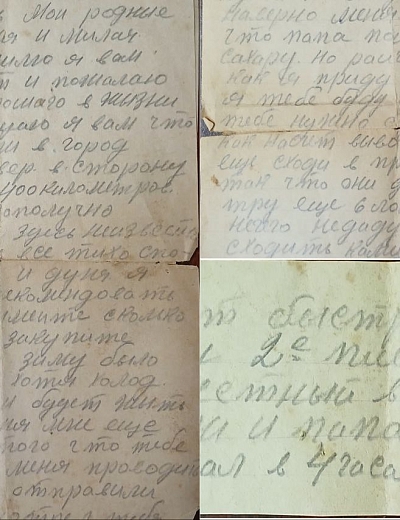 Мои родные
я и милая
я вам
т и пожалаю
в жизни
я вам что
ли в город
вер. в сторону
километров
ополучно
здесь неизвестн
все тихо спо
и дуня я
екомендовать
сколько
закупите
зиму было
хотя холод
и будет жить
ня мне еще
того что тебе
меня проводи
отправили
наверно меня
что папа по
сахару. но
как я приду
я тебе буду
тебе нужно
как насчет выво
еще сходи в пр
так что они д
тру еще в
нечего недаду
сходить
т быстр
2е пис
естный в
и и папа
ал в 4 часа